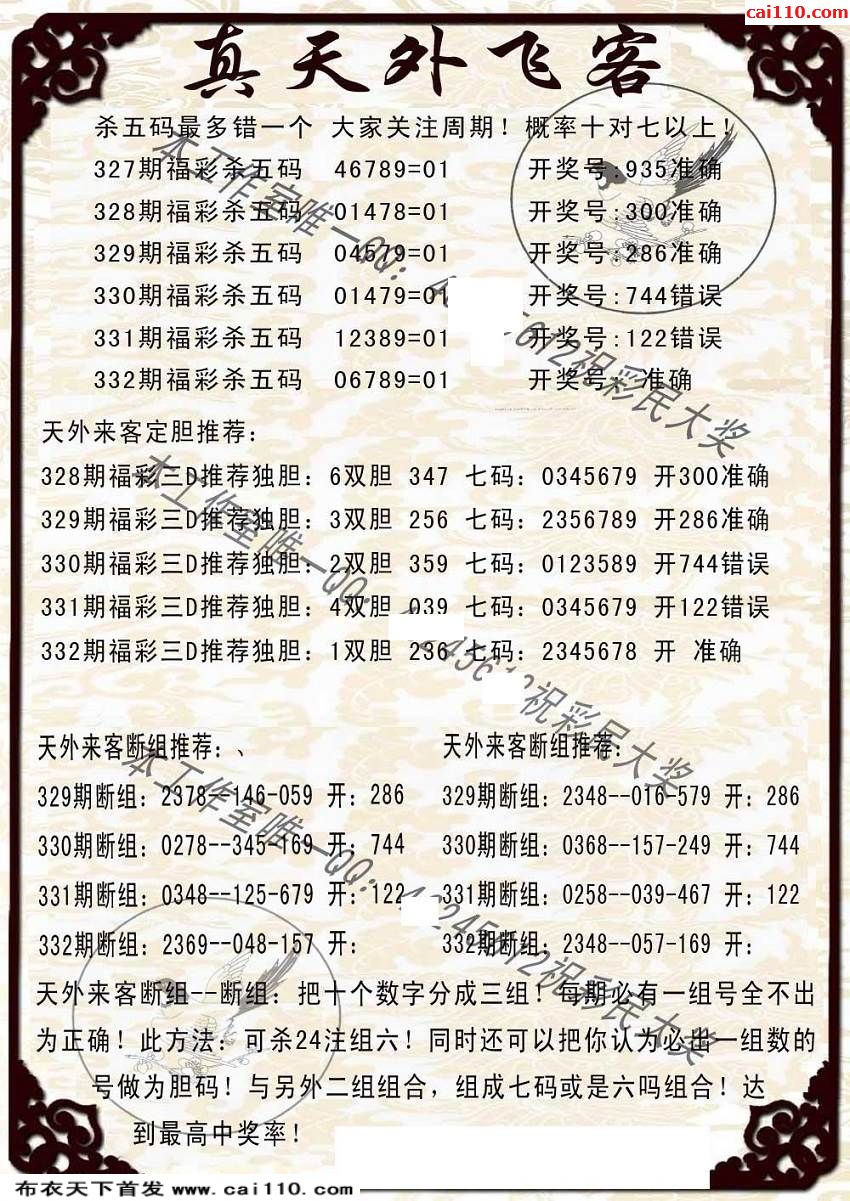 cai110.com
真天外飞客
杀五码最多错一个 大家关注周期！概率十对七以上！
327期福彩杀五码 46789=01 开奖号:935准确
328期福彩杀五码 01478=01 开奖号:300准确
329期福彩杀五码 04579=01 开奖号:286准确
330期福彩杀五码 01479=01 开奖号:744错误
331期福彩杀五码 12389=01 开奖号:122错误
332期福彩杀五码 06789=01 开奖号: 准确
天外来客定胆推荐：
328期福彩三D推荐独胆：6双胆 347 七码：0345679 开300准确
329期福彩三D推荐独胆：3双胆 256 七码：2356789 开286准确
330期福彩三D推荐独胆：2双胆 359 七码：0123589 开744错误
331期福彩三D推荐独胆：4双胆 039 七码：0345679 开122错误
332期福彩三D推荐独胆：1双胆 236 七码：2345678 开 准确
天外来客断组推荐：、
329期断组：2378--146-059 开：286
330期断组：0278--345-169 开：744
331期断组：0348--125-679 开：122
332期断组：2369--048-157 开：
天外来客断组推荐：
329期断组：2348--016-579 开：286
330期断组：0368--157-249 开：744
331期断组：0258--039-467 开：122
332期断组：2348--057-169 开：
天外来客断组--断组：把十个数字分成三组！每期必有一组号全不出
为正确！此方法：可杀24注组六！同时还可以把你认为必出一组数的
号做为胆码！与另外二组组合，组成七码或是六吗组合！达
到最高中奖率！
本工作室唯一QQ： 612祝彩民大奖
本工作室唯一QQ： 祝彩民大奖
本工作室唯一QQ： 2245612祝彩民大奖
布衣天下首发 www.cai110.com